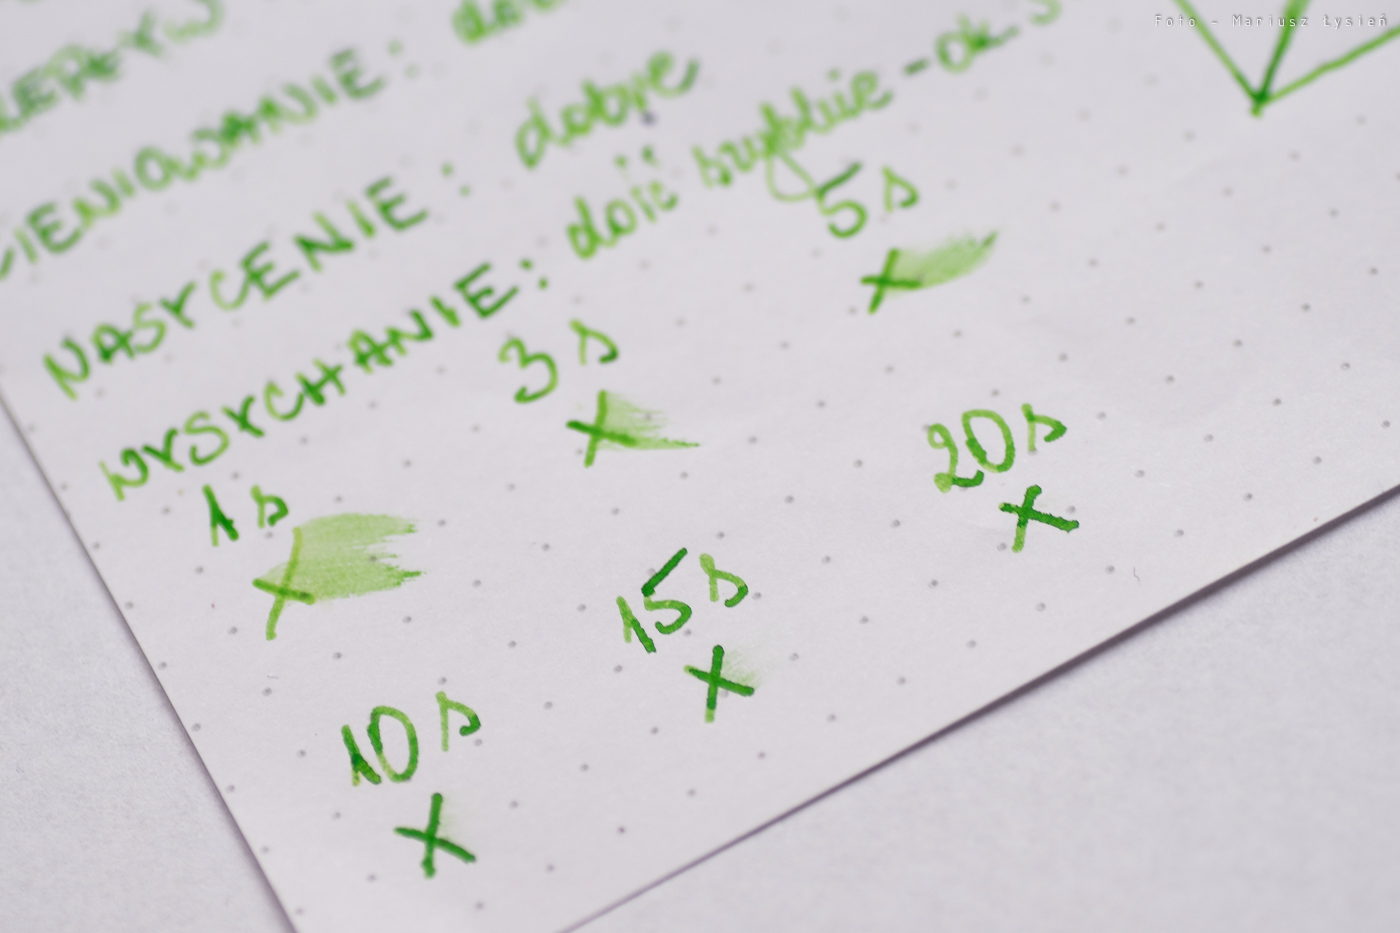 Foto - Mariusz Łysień
CIENIOWANIE:
NASYCENIE: dobre
WYSYCHANIE: dość szybkie - ok.
1s
3s
5s
10s
15s
20s